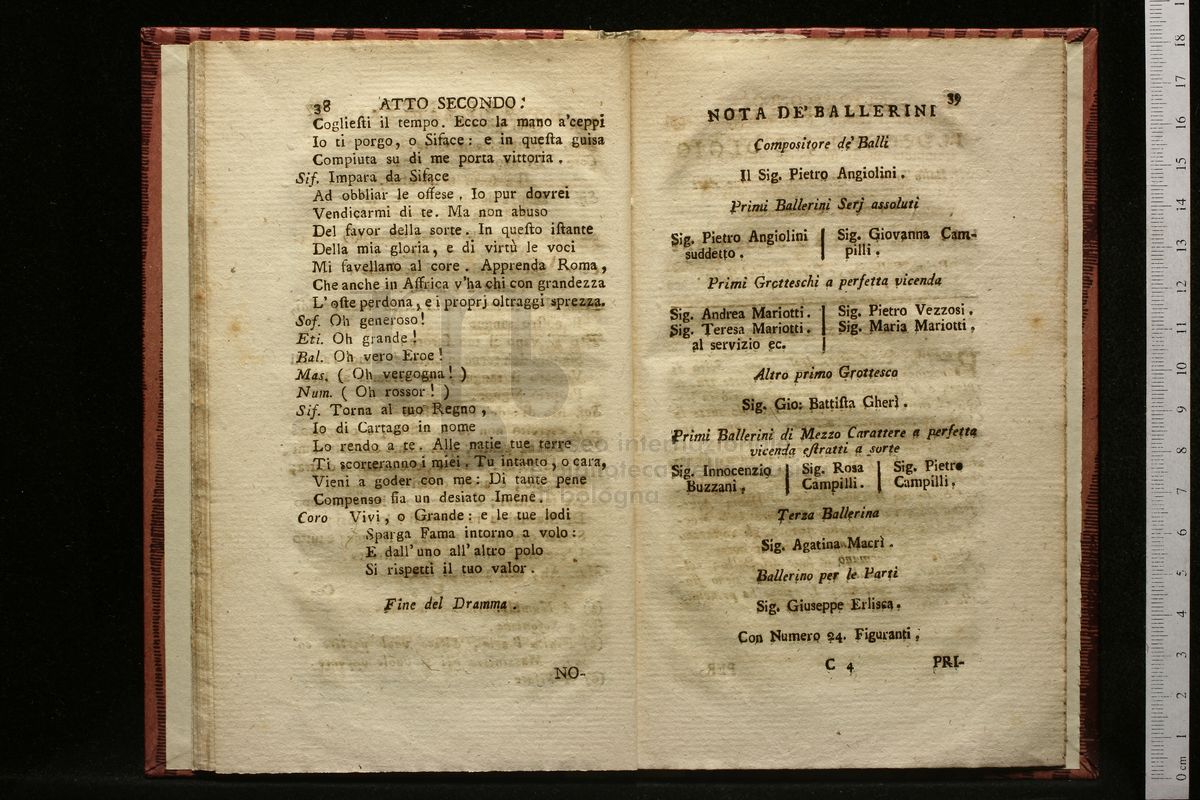 38 ATTO SECONDO.
Cogliesti il tempo. Ecco la mano a'ceppi
Io ti porgo, o Siface: e in questa guisa
Compiuta su di me porta vittoria.
Sif. Impara da Siface
Ad obbliar le offese. Io pur dovrei
Vendicarmi di te. Ma non abuso
Del favor della sorte. In questo istante
Della mia gloria, e di virtù le voci
Mi favellano al core. Apprenda Roma,
Che anche in Affrica v'ha chi con grandezza
L'oste perdona, e i proprj oltraggi sprezza.
Sof. Oh generoso!
Eti. Oh grande!
Bal. Oh vero Eroe!
Mas. (Oh vergogna!)
Num. (Oh rossor!)
Sif. Torna al tuo Regno,
Io di Cartago in nome
Lo rendo a te. Alle natie tue terre
Ti scorteranno i miei. Tu intanto, o cara,
Vieni a goder con me: Di tante pene
Compenso sia un desiato Imene.
Coro Vivi, o Grande: e le tue lodi
Sparga Fama intorno a volo:
E dall'uno all'altro polo
Si rispetti il tuo valor.
Fine del Dramma.
NO-
39
NOTA DE' BALLERINI
Compositore de' Balli
Il Sig. Pietro Angiolini.
Primi Ballerini Serj assoluti
Sig. Pietro Angiolini | Sig. Giovanna Cam-
suddetto. | pilli.
Primi Grotteschi a perfetta vicenda
Sig. Andrea Mariotti. | Sig. Pietro Vezzosi.
Sig. Teresa Mariotti. | Sig. Maria Mariotti.
al servizio ec.
Altro primo Grottesco
Sig. Gio: Battista Gherì.
Primi Ballerini di Mezzo Carattere a perfetta
vicenda estratti a sorte
Sig. Innocenzio | Sig. Rosa | Sig. Pietro
Buzzani. | Campilli. | Campilli.
Terza Ballerina
Sig. Agatina Macrì.
Ballerino per le Parti
Sig. Giuseppe Erlisca.
Con Numero 24. Figuranti.
C 4 PRI-